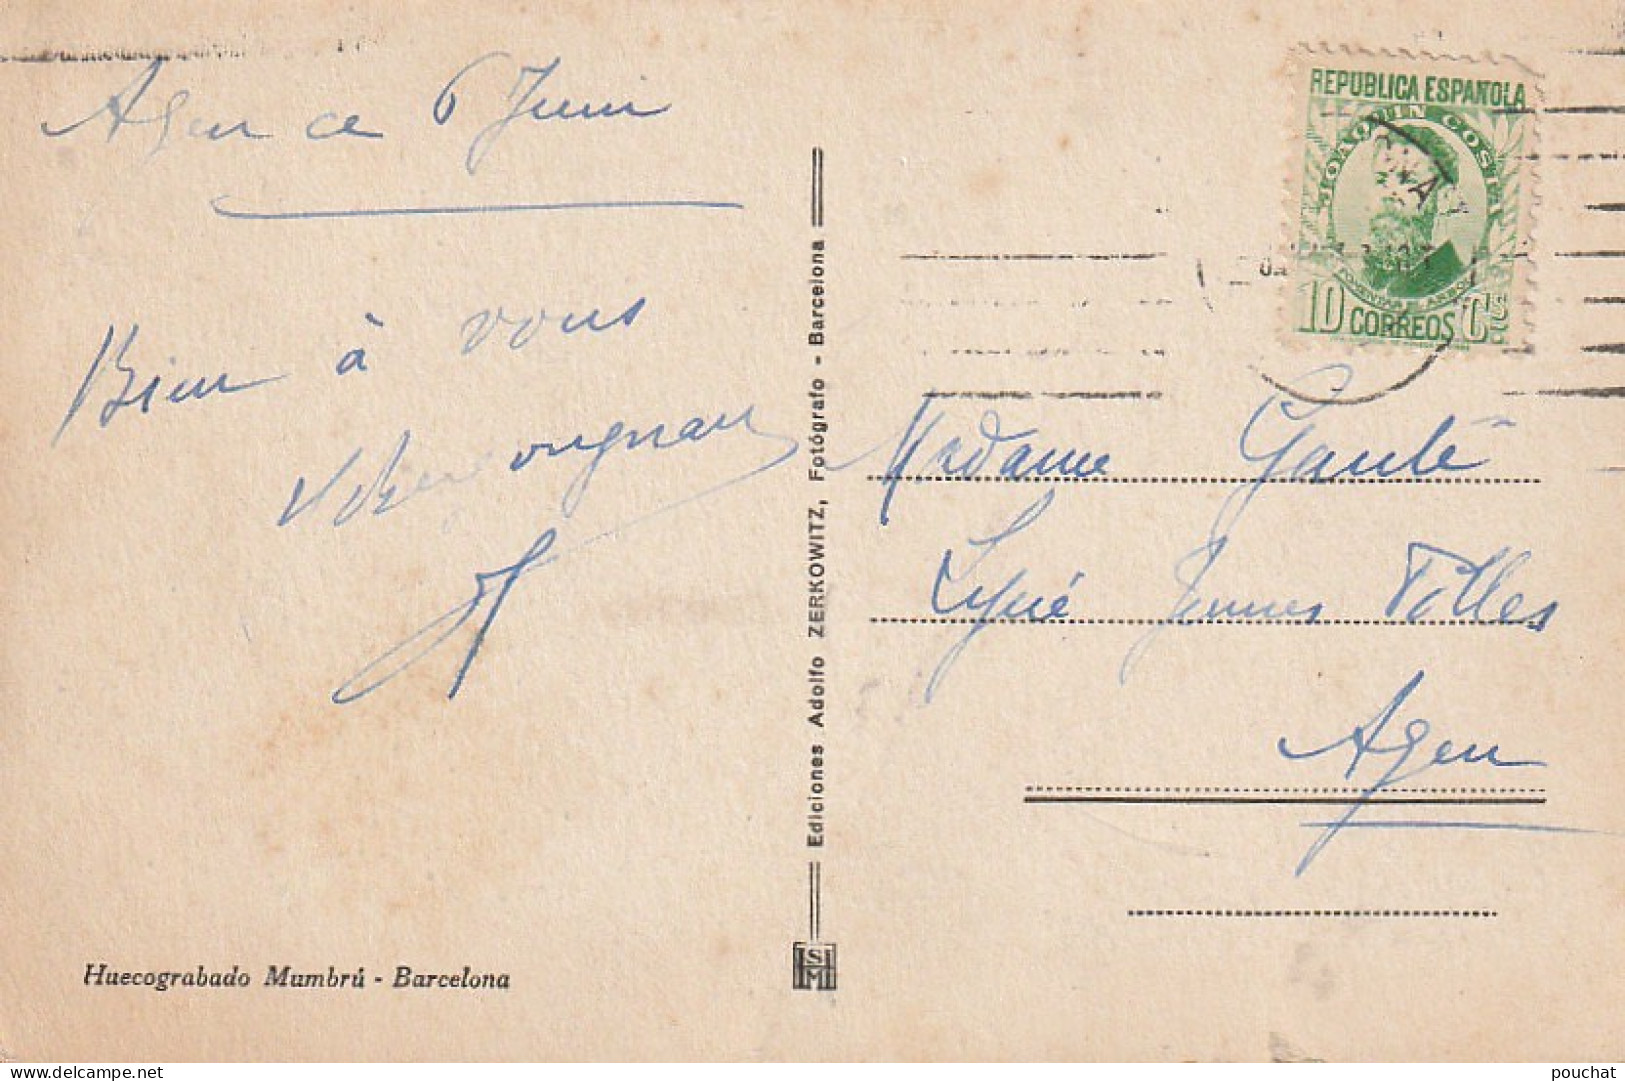 Agen ce 6 Juin
Bien à vous
REPUBLICA ESPAÑOLA
JOAQUIN COSTA
10 CORREOS Cts
Ediciones Adolfo ZERKOWITZ, Fotógrafo - Barcelona
Madame Gaulé
Lycée Jeunes Filles
Agen
Huecograbado Mumbrú - Barcelona
HSM
delcampe.net
pouchat